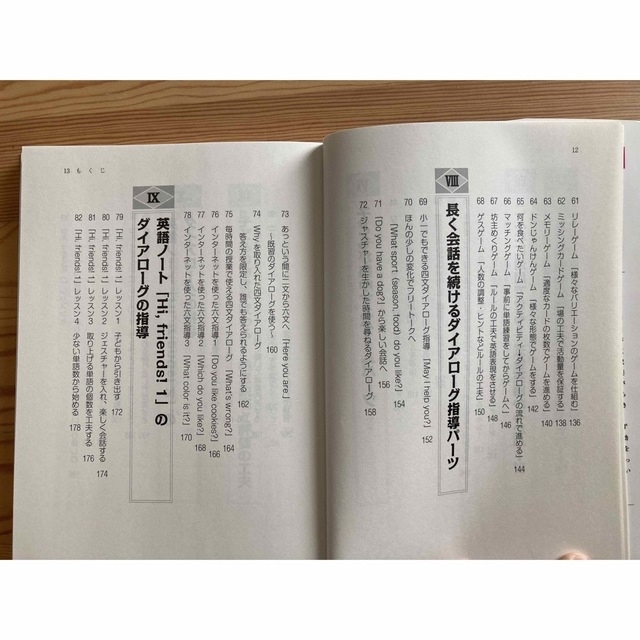 12
61 リレーゲーム「様々なバリエーションのゲームを仕組む」 136
62 ミッシングカードゲーム「場の工夫で活動量を保証する」 138
63 メモリーゲーム「適度なカードの枚数でゲームを進める」 140
64 ドンじゃんけんゲーム「様々な形態でゲームをする」 142
65 何を食べたいゲーム「アクティビティ→ダイアローグの流れで進める」 144
66 マッチングゲーム「事前に単語練習をしてからゲームへ」 146
67 坊主めくりゲーム「ルールの工夫で英語表現をさせる」 148
68 ゲスゲーム「人数の調整・ヒントなどルールの工夫」 150
VIII 長く会話を続けるダイアローグ指導パーツ
69 小一でもできる四文ダイアローグ指導「May I help you?」 152
70 ほんの少しの変化でフリートークへ
「What sport (season, food) do you like?」 154
71 「Do you have a dog?」から楽しい会話へ 156
72 ジャスチャーを生かした時間を尋ねるダイアローグ 158
73 あっという間に二文から六文へ「Here you are.」
～既習のダイアローグを使う～ 160
74 Whyを取り入れた四文ダイアローグ
答え方を限定し、誰でも答えられるようにする 162
75 毎時間の授業で使える四文ダイアローグ「What's wrong?」 164
76 インターネットを使った六文指導1「Do you like cookies?」 166
77 インターネットを使った六文指導2「Which do you like?」 168
78 インターネットを使った六文指導3「What color is it?」 170
IX 英語ノート「Hi, friends! 1」の
ダイアローグの指導
79 「Hi, friends! 1」レッスン1 子どもから引き出す 172
80 「Hi, friends! 1」レッスン2 ジェスチャーを入れ、楽しく会話する 174
81 「Hi, friends! 1」レッスン3 取り上げる単語の個数を工夫する 176
82 「Hi, friends! 1」レッスン4 少ない単語数から始める 178
13 もくじ